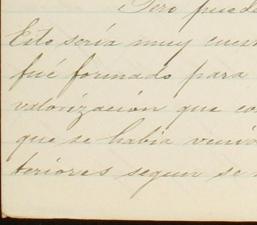 Pero puede
Esto sería muy
fué formado para
valorización que
que se habia
teriores segun se